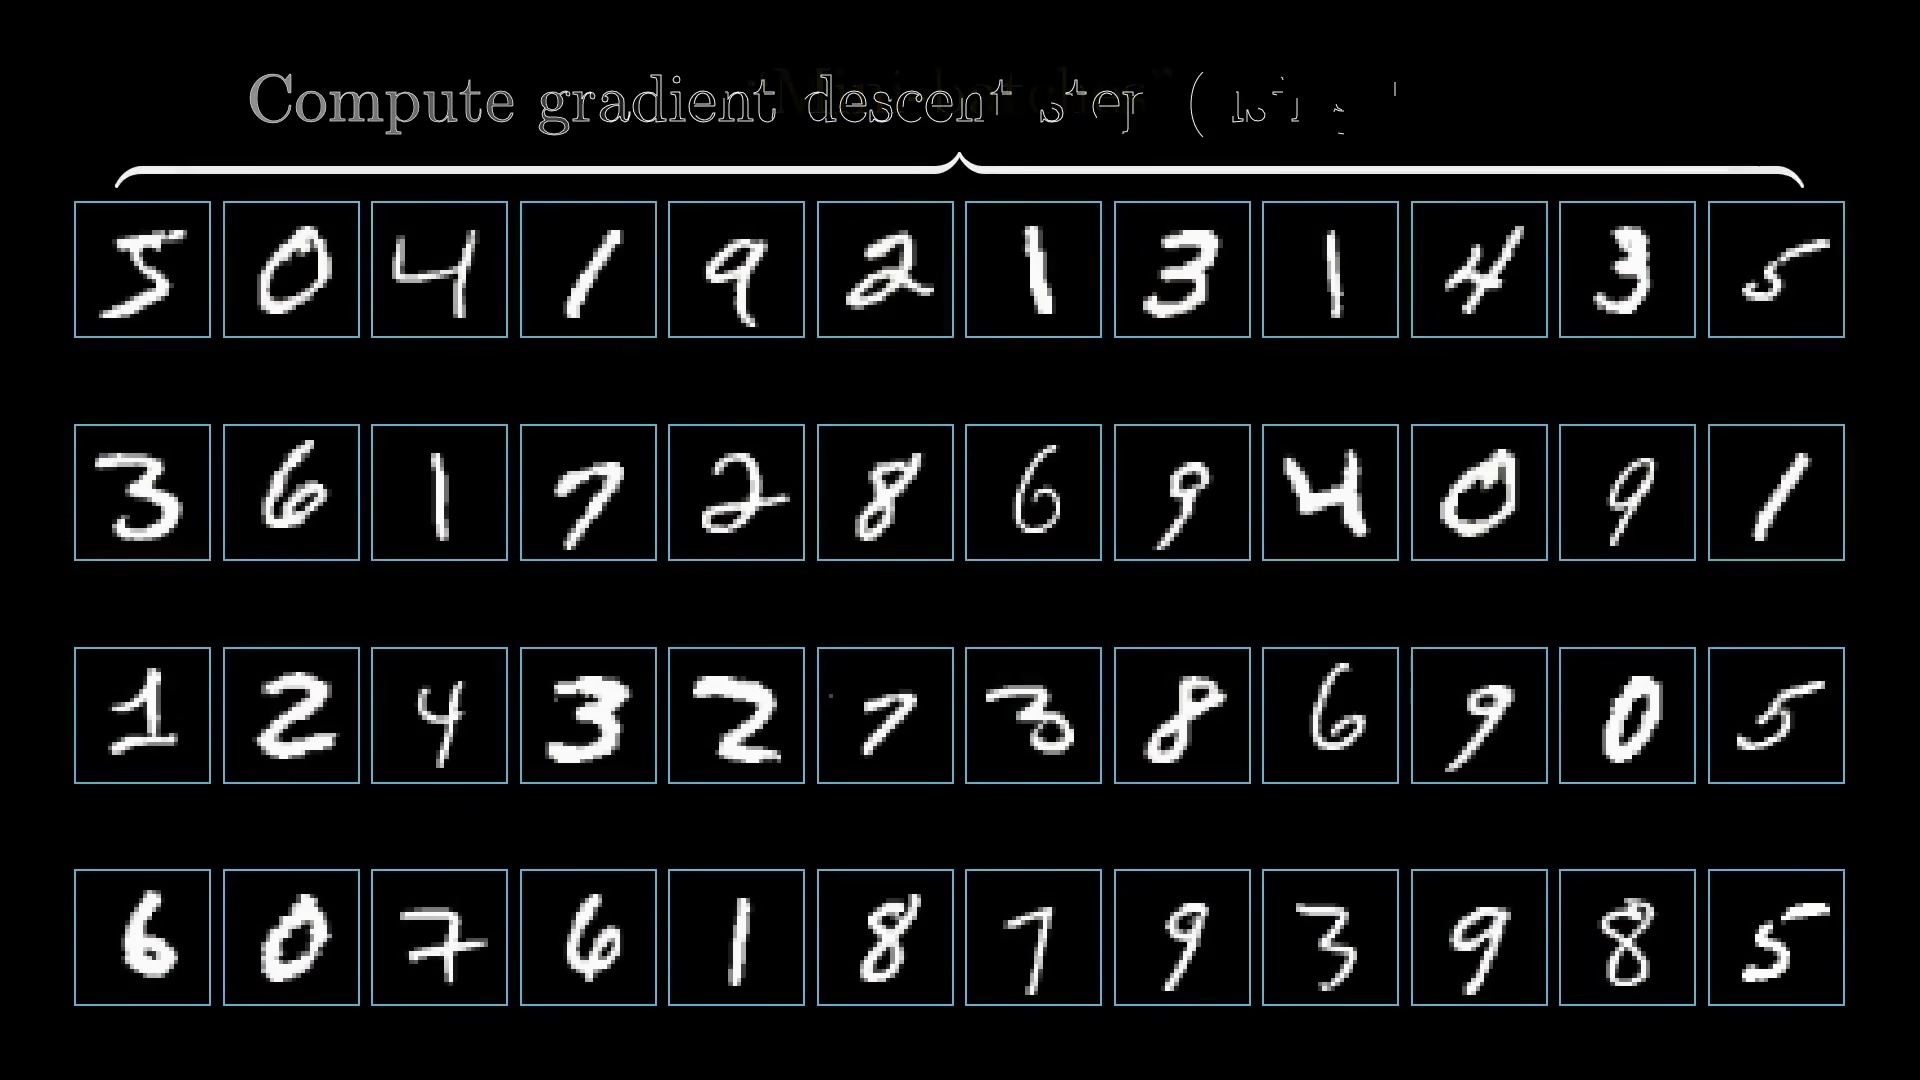 Compute gradient descent step (
5 0 4 1 9 2 1 3 1 4 3 5
3 6 1 7 2 8 6 9 4 0 9 1
1 2 4 3 2 7 3 8 6 9 0 5
6 0 7 6 1 8 7 9 3 9 8 5